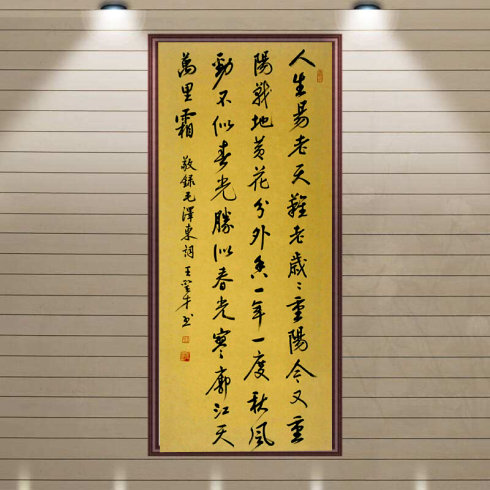 人生易老天難老歲〻重陽今又重
陽戰地黃花分外香一年一度秋風
勁不似春光勝似春光寥廓江天
萬里霜
敬錄毛澤東詞 王學才书